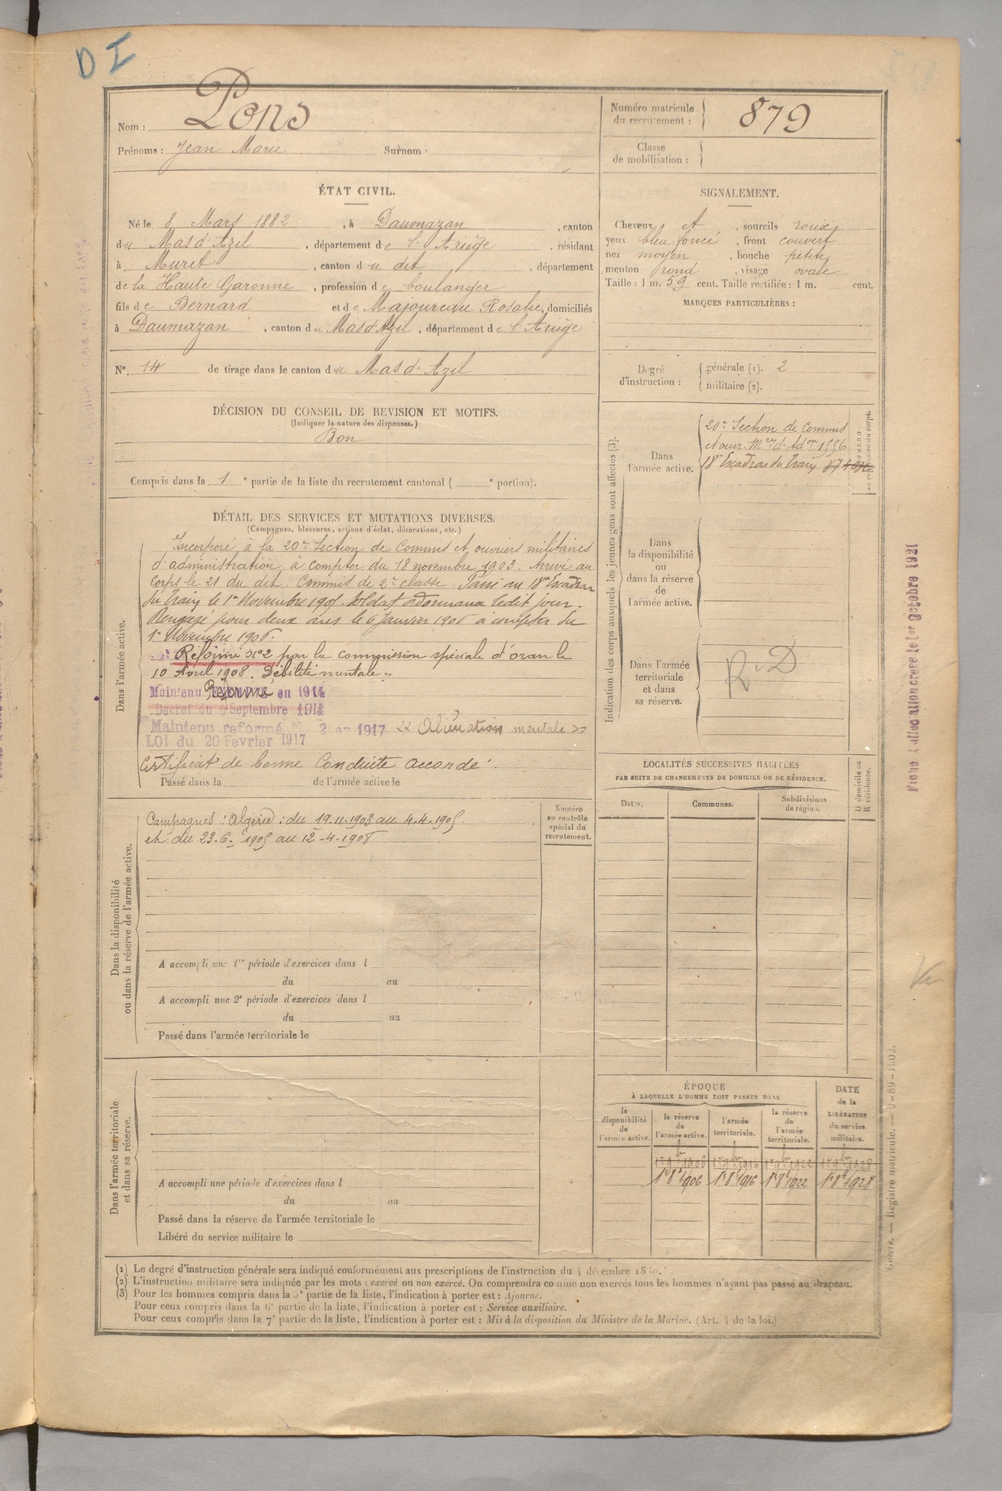 DI
Nom : Pons
Prénoms : Jean Marie Surnom
Numéro matricule du recrutement : 879
Classe de mobilisation :
ÉTAT CIVIL.
Né le 8 Mars 1882, à Daumazan, canton
du Mas d'Azil, département de l'Ariège, résidant
à Muret, canton du dit, département
de la Haute Garonne, profession de boulanger
fils de Bernard et de Majoureau Rosalie, domiciliés
à Daumazan, canton du Mas d'Azil, département de l'Ariège
N° 14 de tirage dans le canton du Mas d'Azil
SIGNALEMENT.
Cheveux et, sourcils roux
yeux bleu foncé, front couvert
nez moyen, bouche petite
menton rond, visage ovale
Taille : 1 m. 59 cent. Taille rectifiée : 1 m. cent.
MARQUES PARTICULIÈRES :
Degré d'instruction : générale (1). 2
militaire (2).
DÉCISION DU CONSEIL DE REVISION ET MOTIFS.
(Indiquer la nature des dispenses.)
Bon
Compris dans la 1e partie de la liste du recrutement cantonal ( e portion).
DÉTAIL DES SERVICES ET MUTATIONS DIVERSES.
(Campagnes, blessures, actions d'éclat, décorations, etc.)
Dans l'armée active.
Incorporé à la 20e Section de Commis et ouvriers militaires
d'administration, à compter du 18 novembre 1903. Arrivé au
Corps le 21 du dit. Commis de 2e classe. Passé au 18e Escadron
du train le 1er Novembre 1905 Soldat ordonnance ledit jour.
Rengagé pour deux ans le 6 janvier 1906 à compter du
1er Novembre 1906.
Réformé N°2 par la commission spéciale d'Oran le
10 Avril 1908. Débilité mentale.
Maintenu Réformé en 1914
Décret du 9 Septembre 1914
Maintenu reformé N° 2 en 1917 "Aliénation mentale"
LOI du 20 Février 1917
Certificat de bonne Conduite accordé.
Passé dans la de l'armée active le
Indication des corps auxquels les jeunes gens sont affectés (3).
Dans l'armée active.
20e Section de Commis
et ouv. Mres d'Adon 1556
18e Escadron du Train
Dans la disponibilité ou dans la réserve de l'armée active.
Dans l'armée territoriale et dans sa réserve.
R.D
LOCALITÉS SUCCESSIVES HABITÉES
PAR SUITE DE CHANGEMENTS DE DOMICILE OU DE RÉSIDENCE.
Dates. Communes. Subdivisions de région. D. domicile ou R. résidence.
Numéro au contrôle spécial du recrutement.
Dans la disponibilité ou dans la réserve de l'armée active.
Campagnes : Algérie : du 19-11-1903 au 4-4-1905
et du 23-6-1905 au 12-4-1908
A accompli une 1re période d'exercices dans l
du au
A accompli une 2e période d'exercices dans l
du au
Passé dans l'armée territoriale le
Dans l'armée territoriale et dans sa réserve.
A accompli une période d'exercices dans l
du au
Passé dans la réserve de l'armée territoriale le
Libéré du service militaire le
ÉPOQUE
À LAQUELLE L'HOMME DOIT PASSER DANS
la disponibilité de l'armée active. la réserve de l'armée active. l'armée territoriale. la réserve de l'armée territoriale.
DATE de la LIBÉRATION du service militaire.
1er 8e 1906 1er 8e 1916 1er 8e 1922 1er 8e 1928
(1) Le degré d'instruction générale sera indiqué conformément aux prescriptions de l'instruction du 4 décembre
(2) L'instruction militaire sera indiquée par les mots : exercé ou non exercé. On comprendra comme non exercés tous les hommes n'ayant pas passé au drapeau.
(3) Pour les hommes compris dans la 5e partie de la liste, l'indication à porter est : Ajourné.
Pour ceux compris dans la 6e partie de la liste, l'indication à porter est : Service auxiliaire.
Pour ceux compris dans la 7e partie de la liste, l'indication à porter est : Mis à la disposition du Ministre de la Marine. (Art. 4 de la loi.)
Fiche d'allocation créée le 1er Octobre 1921
Guerre. — Registre matricule.